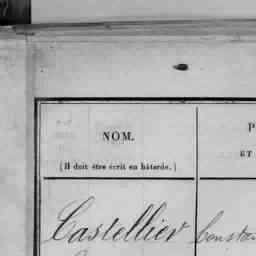 NOM.
P
ET
(Il doit être écrit en bâtarde.)
Castellier Constan